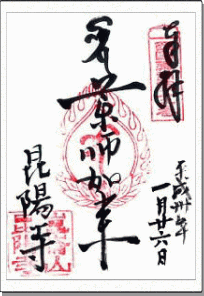 奉拝
平成廿年
一月廿六日
薬師如来
昆陽寺